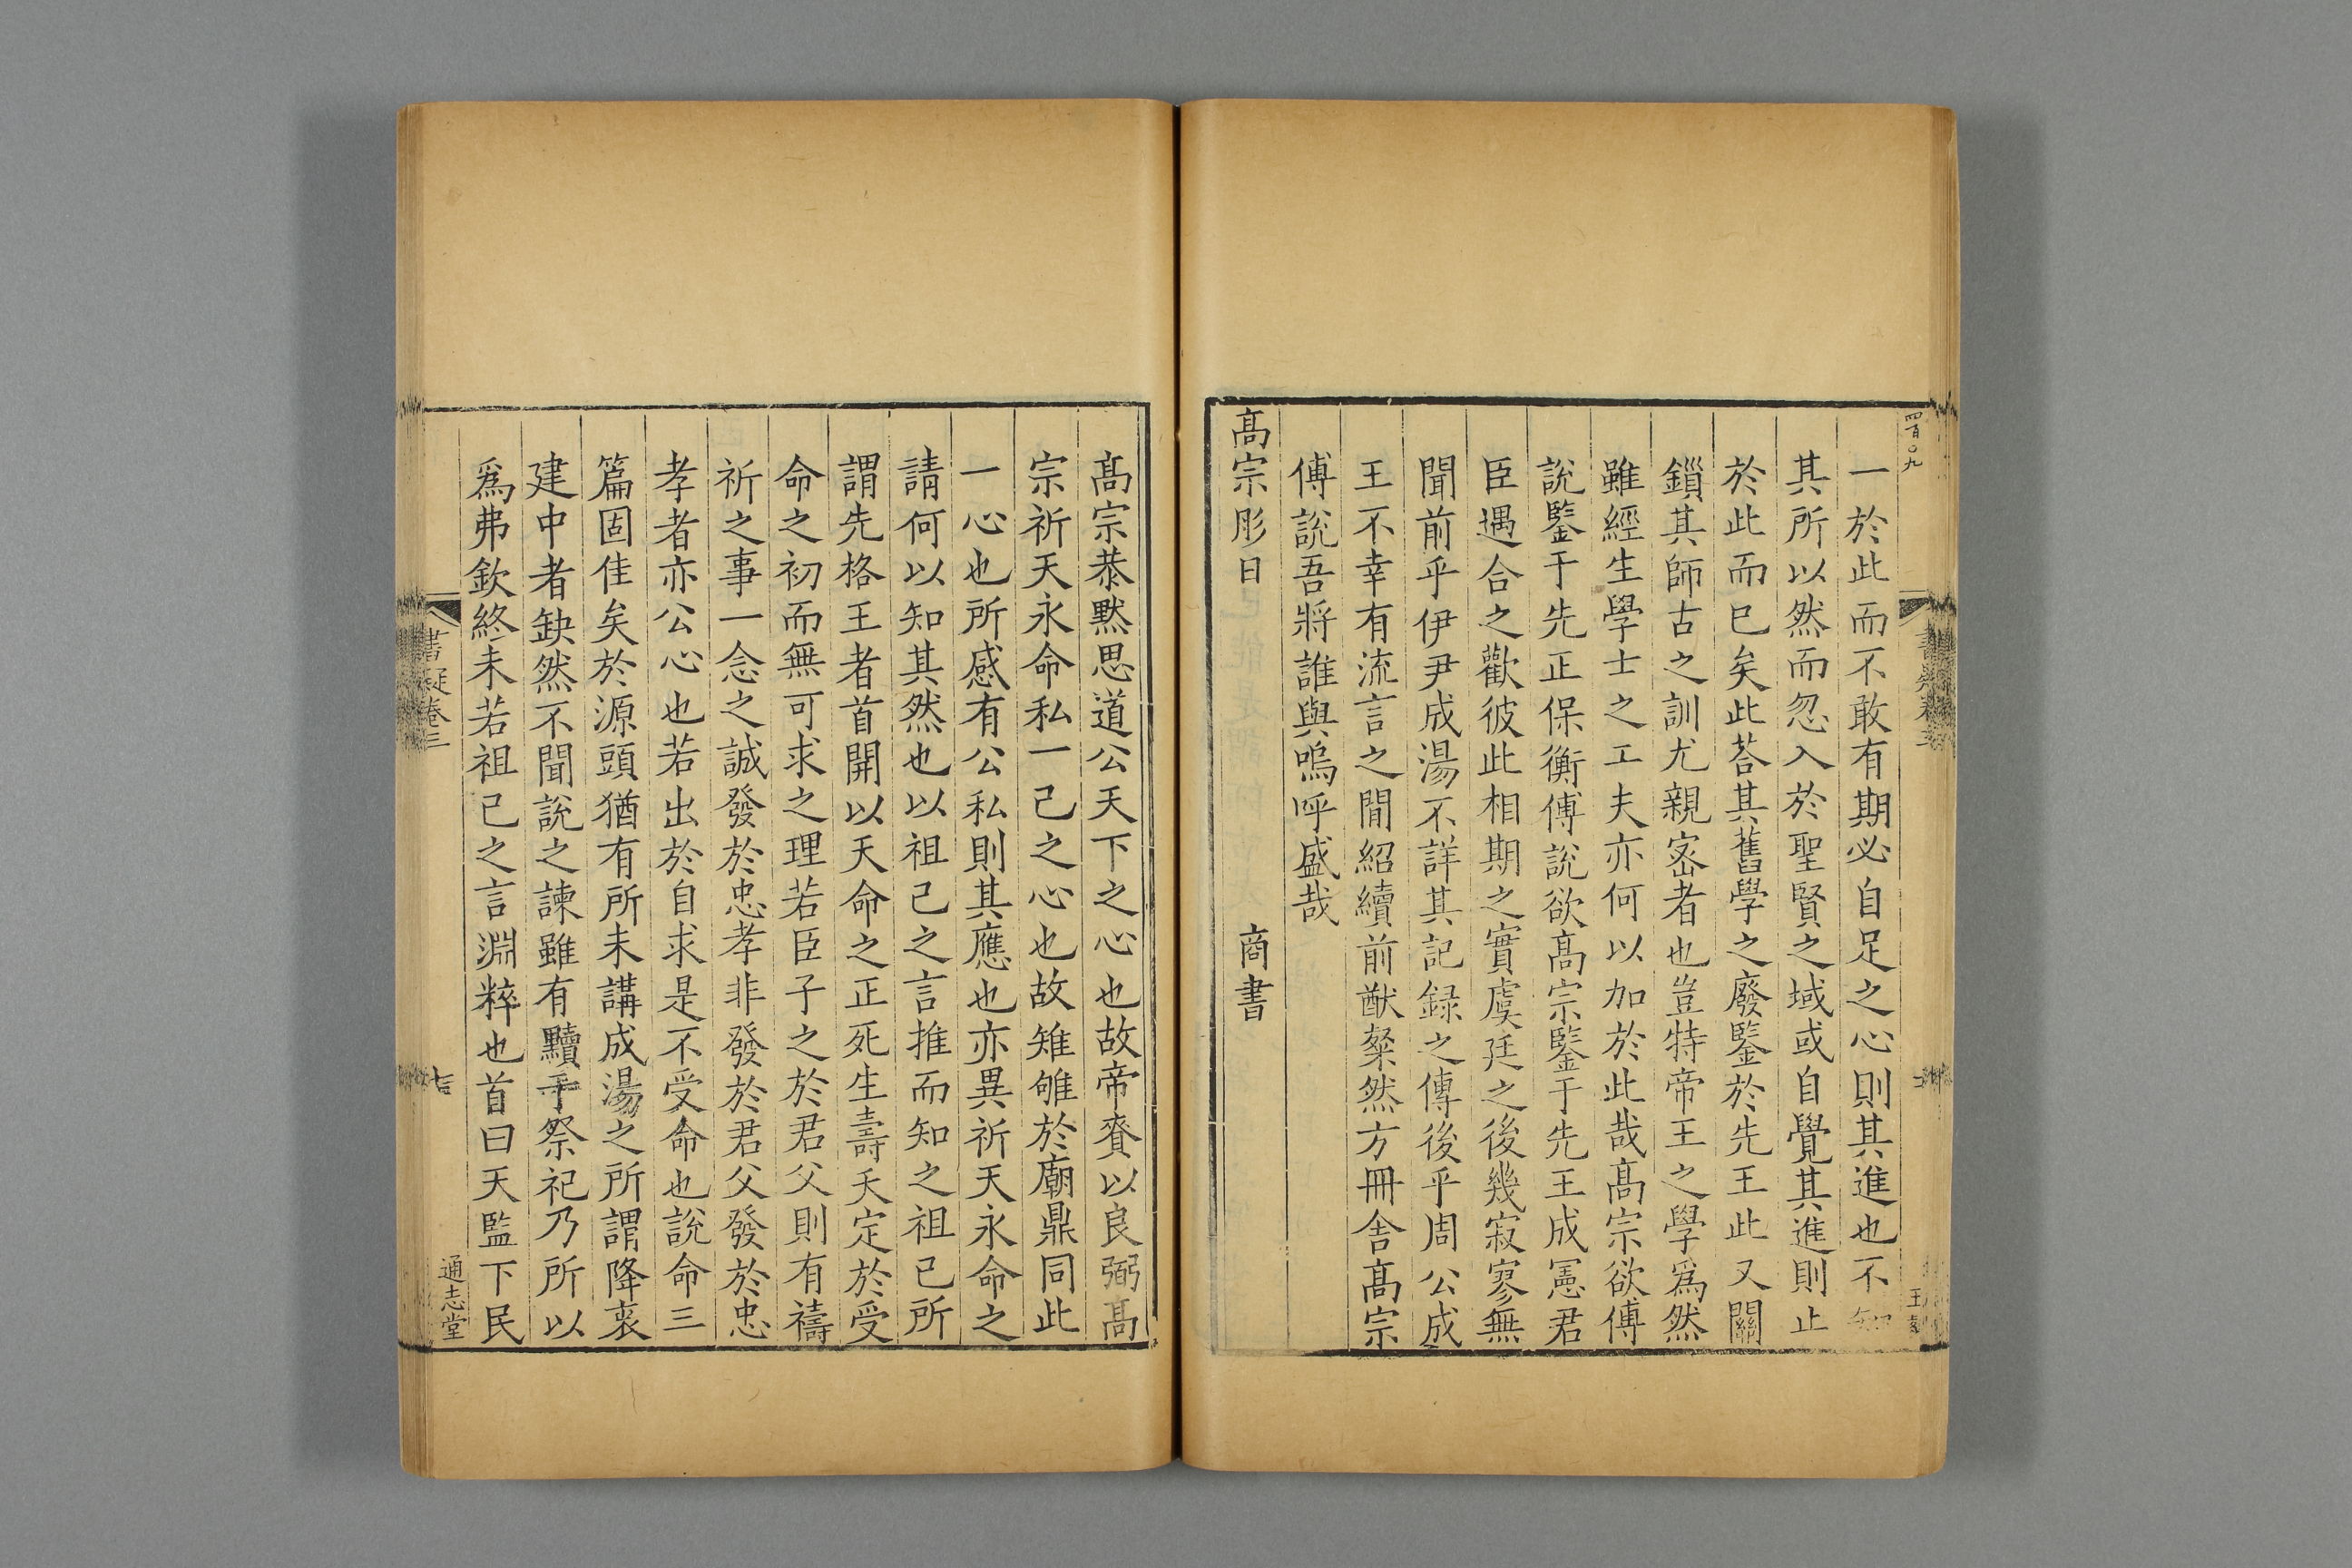 四百〇九
一於此而不敢有期必自足之心則其進也不知
其所以然而忽入於聖賢之域或自覺其進則止
於此而已矣此荅其舊學之廢鍳於先王此又關
鎻其師古之訓尤親宻者也豈特帝王之學爲然
雖經生學士之工夫亦何以加於此哉髙宗欲傅
說鍳于先正保衡傅說欲髙宗鍳于先王成憲君
臣遇合之歡彼此相期之實虞廷之後幾寂寥無
聞前乎伊尹成湯不詳其記録之傳後乎周公成
王不幸有流言之間紹續前猷粲然方冊舍髙宗
傅說吾將誰與嗚呼盛哉
髙宗肜日 商書
髙宗恭黙思道公天下之心也故帝賚以良弼髙
宗祈天永命私一己之心也故雉雊於廟鼎同此
一心也所感有公私則其應也亦異祈天永命之
請何以知其然也以祖己之言推而知之祖己所
謂先格王者首開以天命之正死生壽夭定於受
命之初而無可求之理若臣子之於君父則有禱
祈之事一念之誠發於忠孝非發於君父發於忠
孝者亦公心也若出於自求是不受命也說命三
篇固佳矣於源頭猶有所未講成湯之所謂降衷
建中者缺然不聞說之諫雖有黷于祭祀乃所以
爲弗欽終未若祖己之言淵粹也首曰天監下民
書疑卷三
七
通志堂